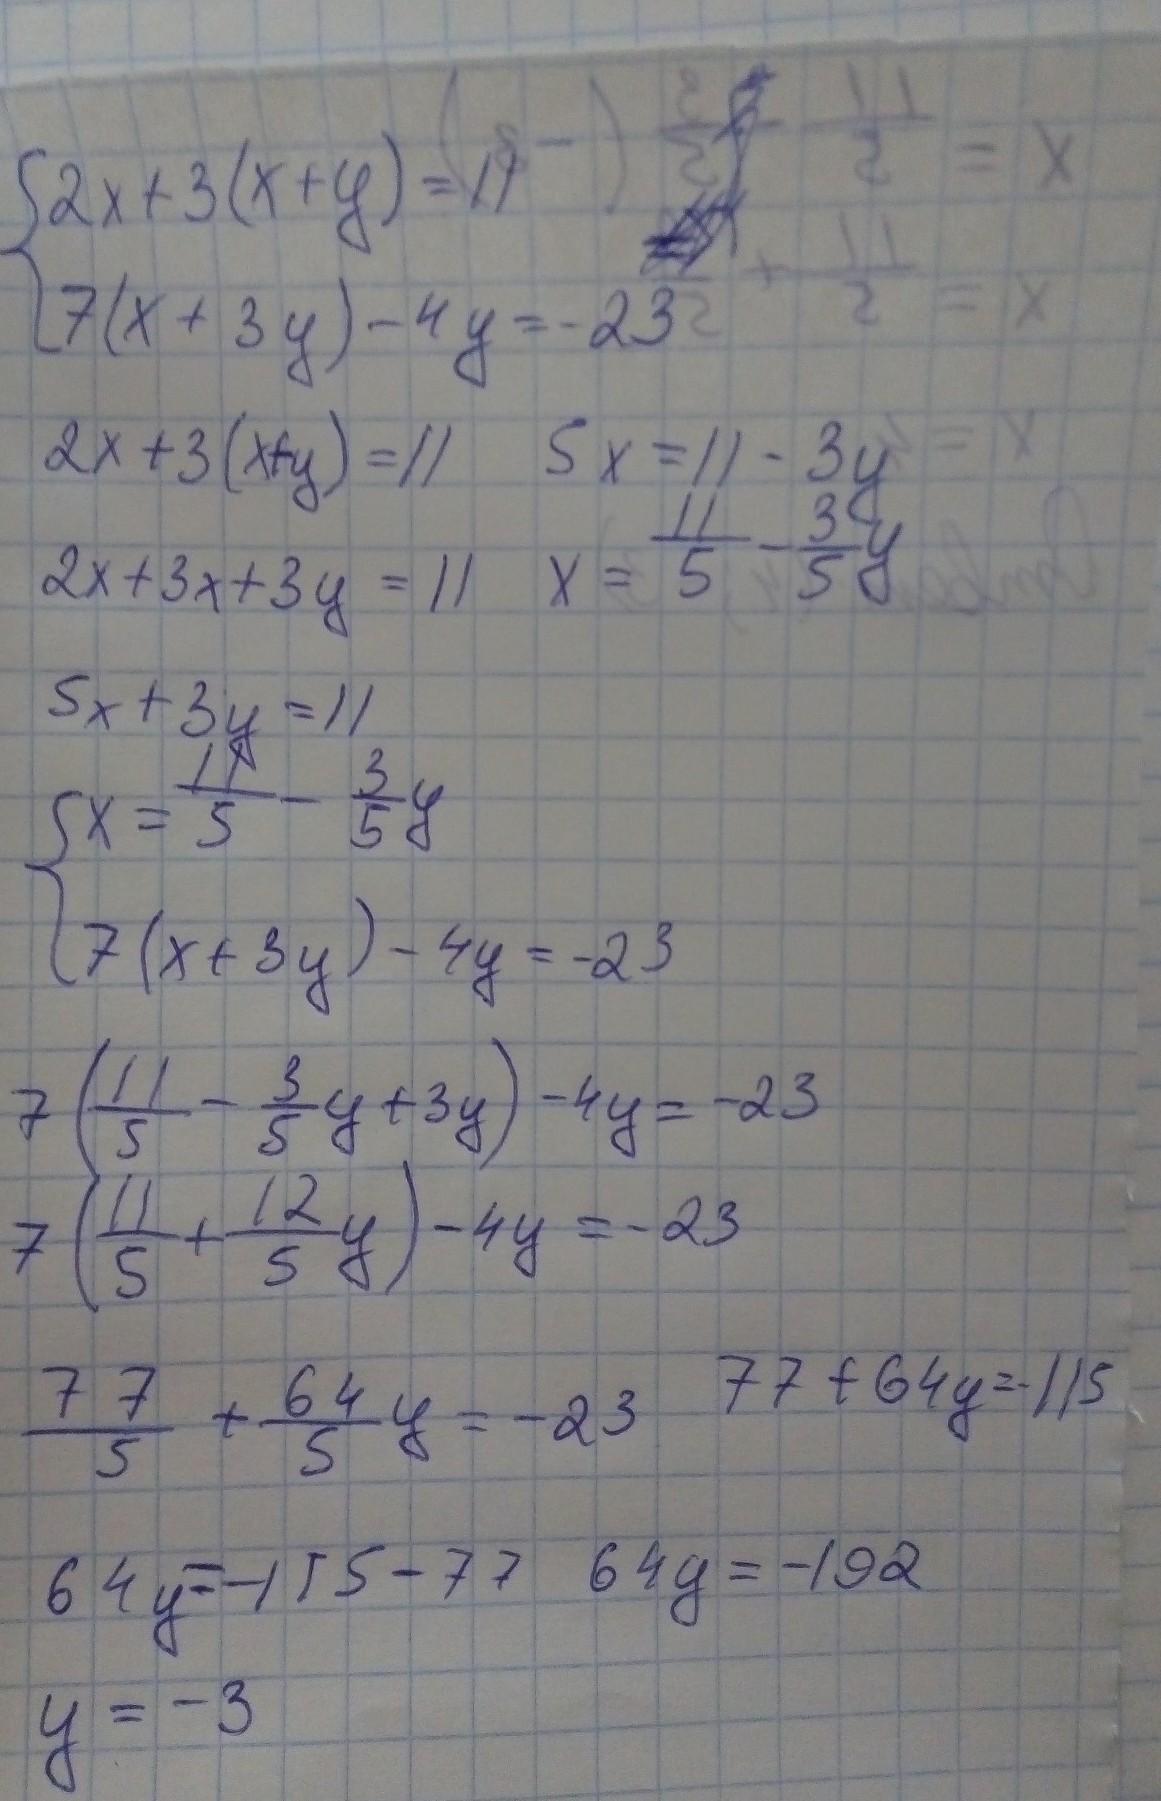 {2x+3(x+y)=11
7(x+3y)-4y=-23
2x+3(x+y)=11 5x=11-3y
2x+3x+3y=11 x=11/5-3/5y
5x+3y=11
{x=11/5-3/5y
7(x+3y)-4y=-23
7(11/5-3/5y+3y)-4y=-23
7(11/5+12/5y)-4y=-23
77/5+64/5y=-23 77+64y=-115
64y=-115-77 64y=-192
y=-3